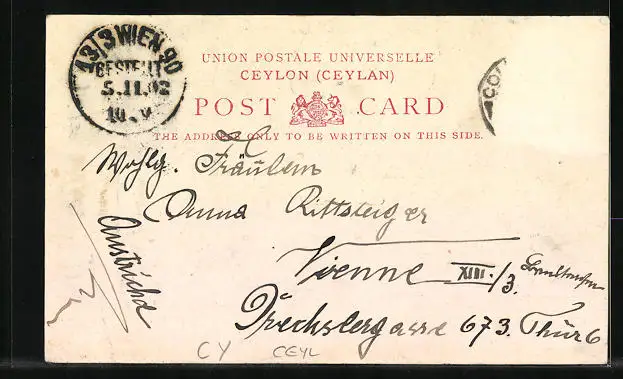 13/3 WIEN 90
BESTELLT
5.11.02
UNION POSTALE UNIVERSELLE
CEYLON (CEYLAN)
POST CARD
THE ADDRESS ONLY TO BE WRITTEN ON THIS SIDE.
Wohlg. Fräulein
Anna Rittsteiger
Vienne XIII./3.
Drechslergasse 673. Thür 6
Autriche
CY CEYL